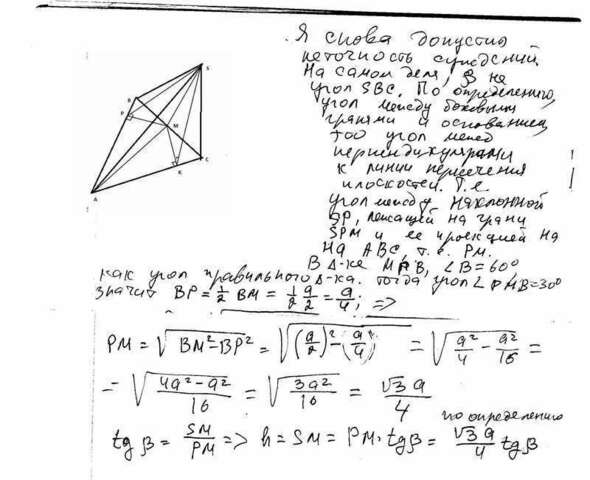 Я снова допустил
неточность суждений.
На самом деле, β не
угол SBC. По определению,
угол между боковыми
гранями и основанием,
тоо угол между
перпендикулярами
к линии пересечения
плоскостей. Т.е.
угол между наклонной
SP, лежащей на грани
SPM и ее проекцией на
на ABC, т.е. PM.
В Δ-ке MPB, ∠B=60°
как угол правильного Δ-ка. Тогда угол ∠PMB=30°
значит BP=1/2 BM = 1/2 a/2 = a/4; =>
S
B
P
M
C
K
A
PM = √(BM²-BP²) = √((a/2)²-(a/4)²) = √(a²/4 - a²/16) =
= √((4a²-a²)/16) = √(3a²/16) = √3a/4
по определению
tgβ = SM/PM => h = SM = PM·tgβ = √3a/4 tgβ